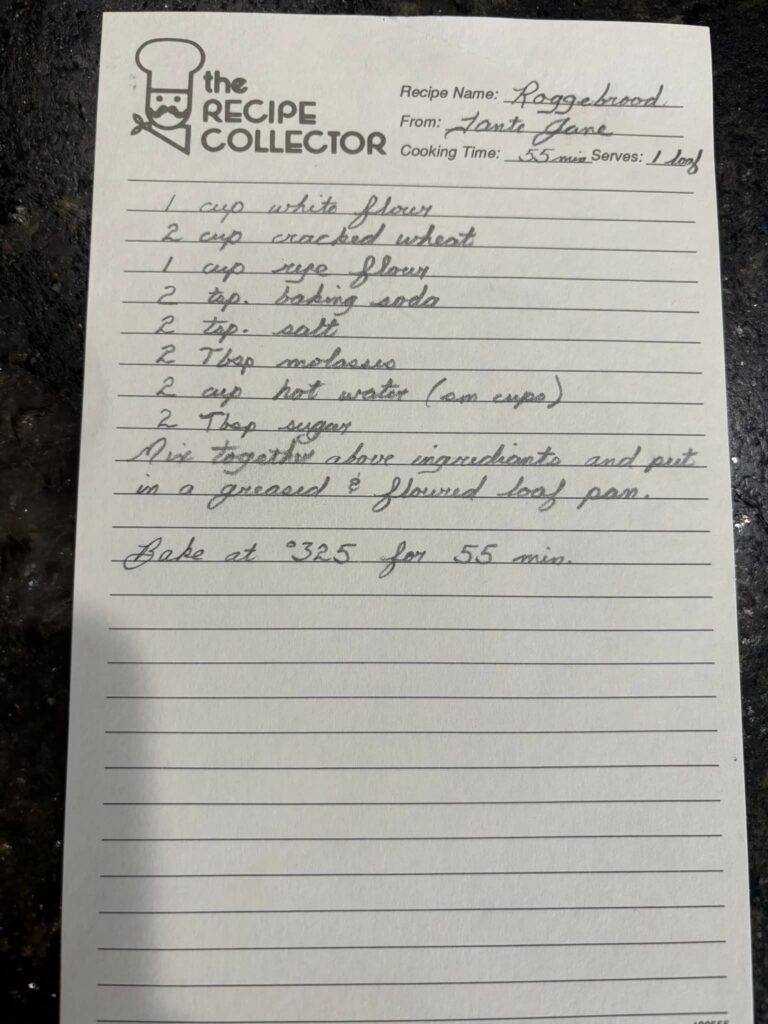 the
RECIPE
COLLECTOR
Recipe Name: Roggebrood
From: Tante Jane
Cooking Time: 55 min Serves: 1 loaf
1 cup white flour
2 cup cracked wheat
1 cup rye flour
2 tsp. baking soda
2 tsp. salt
2 Tbsp molasses
2 cup hot water (sm cups)
2 Tbsp sugar
Mix together above ingrediants and put
in a greased & floured loaf pan.
Bake at °325 for 55 min.